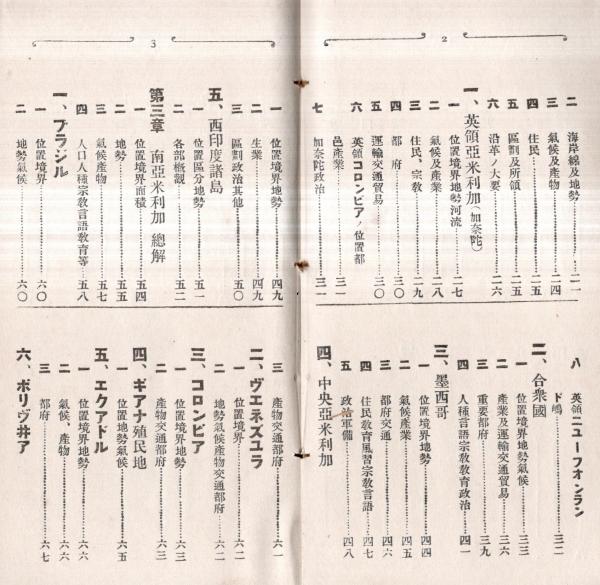 2
二 海岸綫及地勢……二一
三 氣候及產物……二四
四 住民……二五
五 區劃及所領……二五
六 沿革ノ大要……二六
一、英領亞米利加（加奈陀）
一 位置境界地勢河流……二七
二 氣候及產業……二八
三 住民、宗敎……二九
四 都府……三〇
五 運輸交通貿易……三〇
六 英領コロンビアノ位置都
邑產業……三一
七 加奈陀政治……三一
八 英領ニューフオンラン
ド嶋……三二
二、合衆國
一 位置境界地勢氣候……三三
二 產業及運輸交通貿易……三六
三 重要都府……三九
四 人種言語宗敎敎育政治……四一
三、墨西哥
一 位置境界地勢……四四
二 氣候產業……四五
三 都府交通……四六
四 住民敎育風習宗敎言語……四七
五 政治軍備……四八
四、中央亞米利加
3
一 位置境界地勢……四九
二 生業……四九
三 區劃政治其他……五〇
五、西印度諸島
一 位置區分地勢……五一
二 各部槪觀……五二
第三章 南亞米利加 總解
一 位置境界面積……五四
二 地勢……五五
三 氣候產物……五七
四 人口人種宗敎言語敎育等……五八
一、ブラジル
一 位置境界……六〇
二 地勢氣候……六〇
三 產物交通都府……六一
二、ヴエネズユラ
一 位置境界……六二
二 地勢氣候產物交通都府……六二
三、コロンビア
一 位置境界地勢……六三
二 產物交通都府……六三
四、ギアナ殖民地
一 位置地勢氣候……六五
五、エクアドル
一 位置境界地勢……六六
二 氣候、產物……六六
三 都府……六七
六、ボリヴ井ア